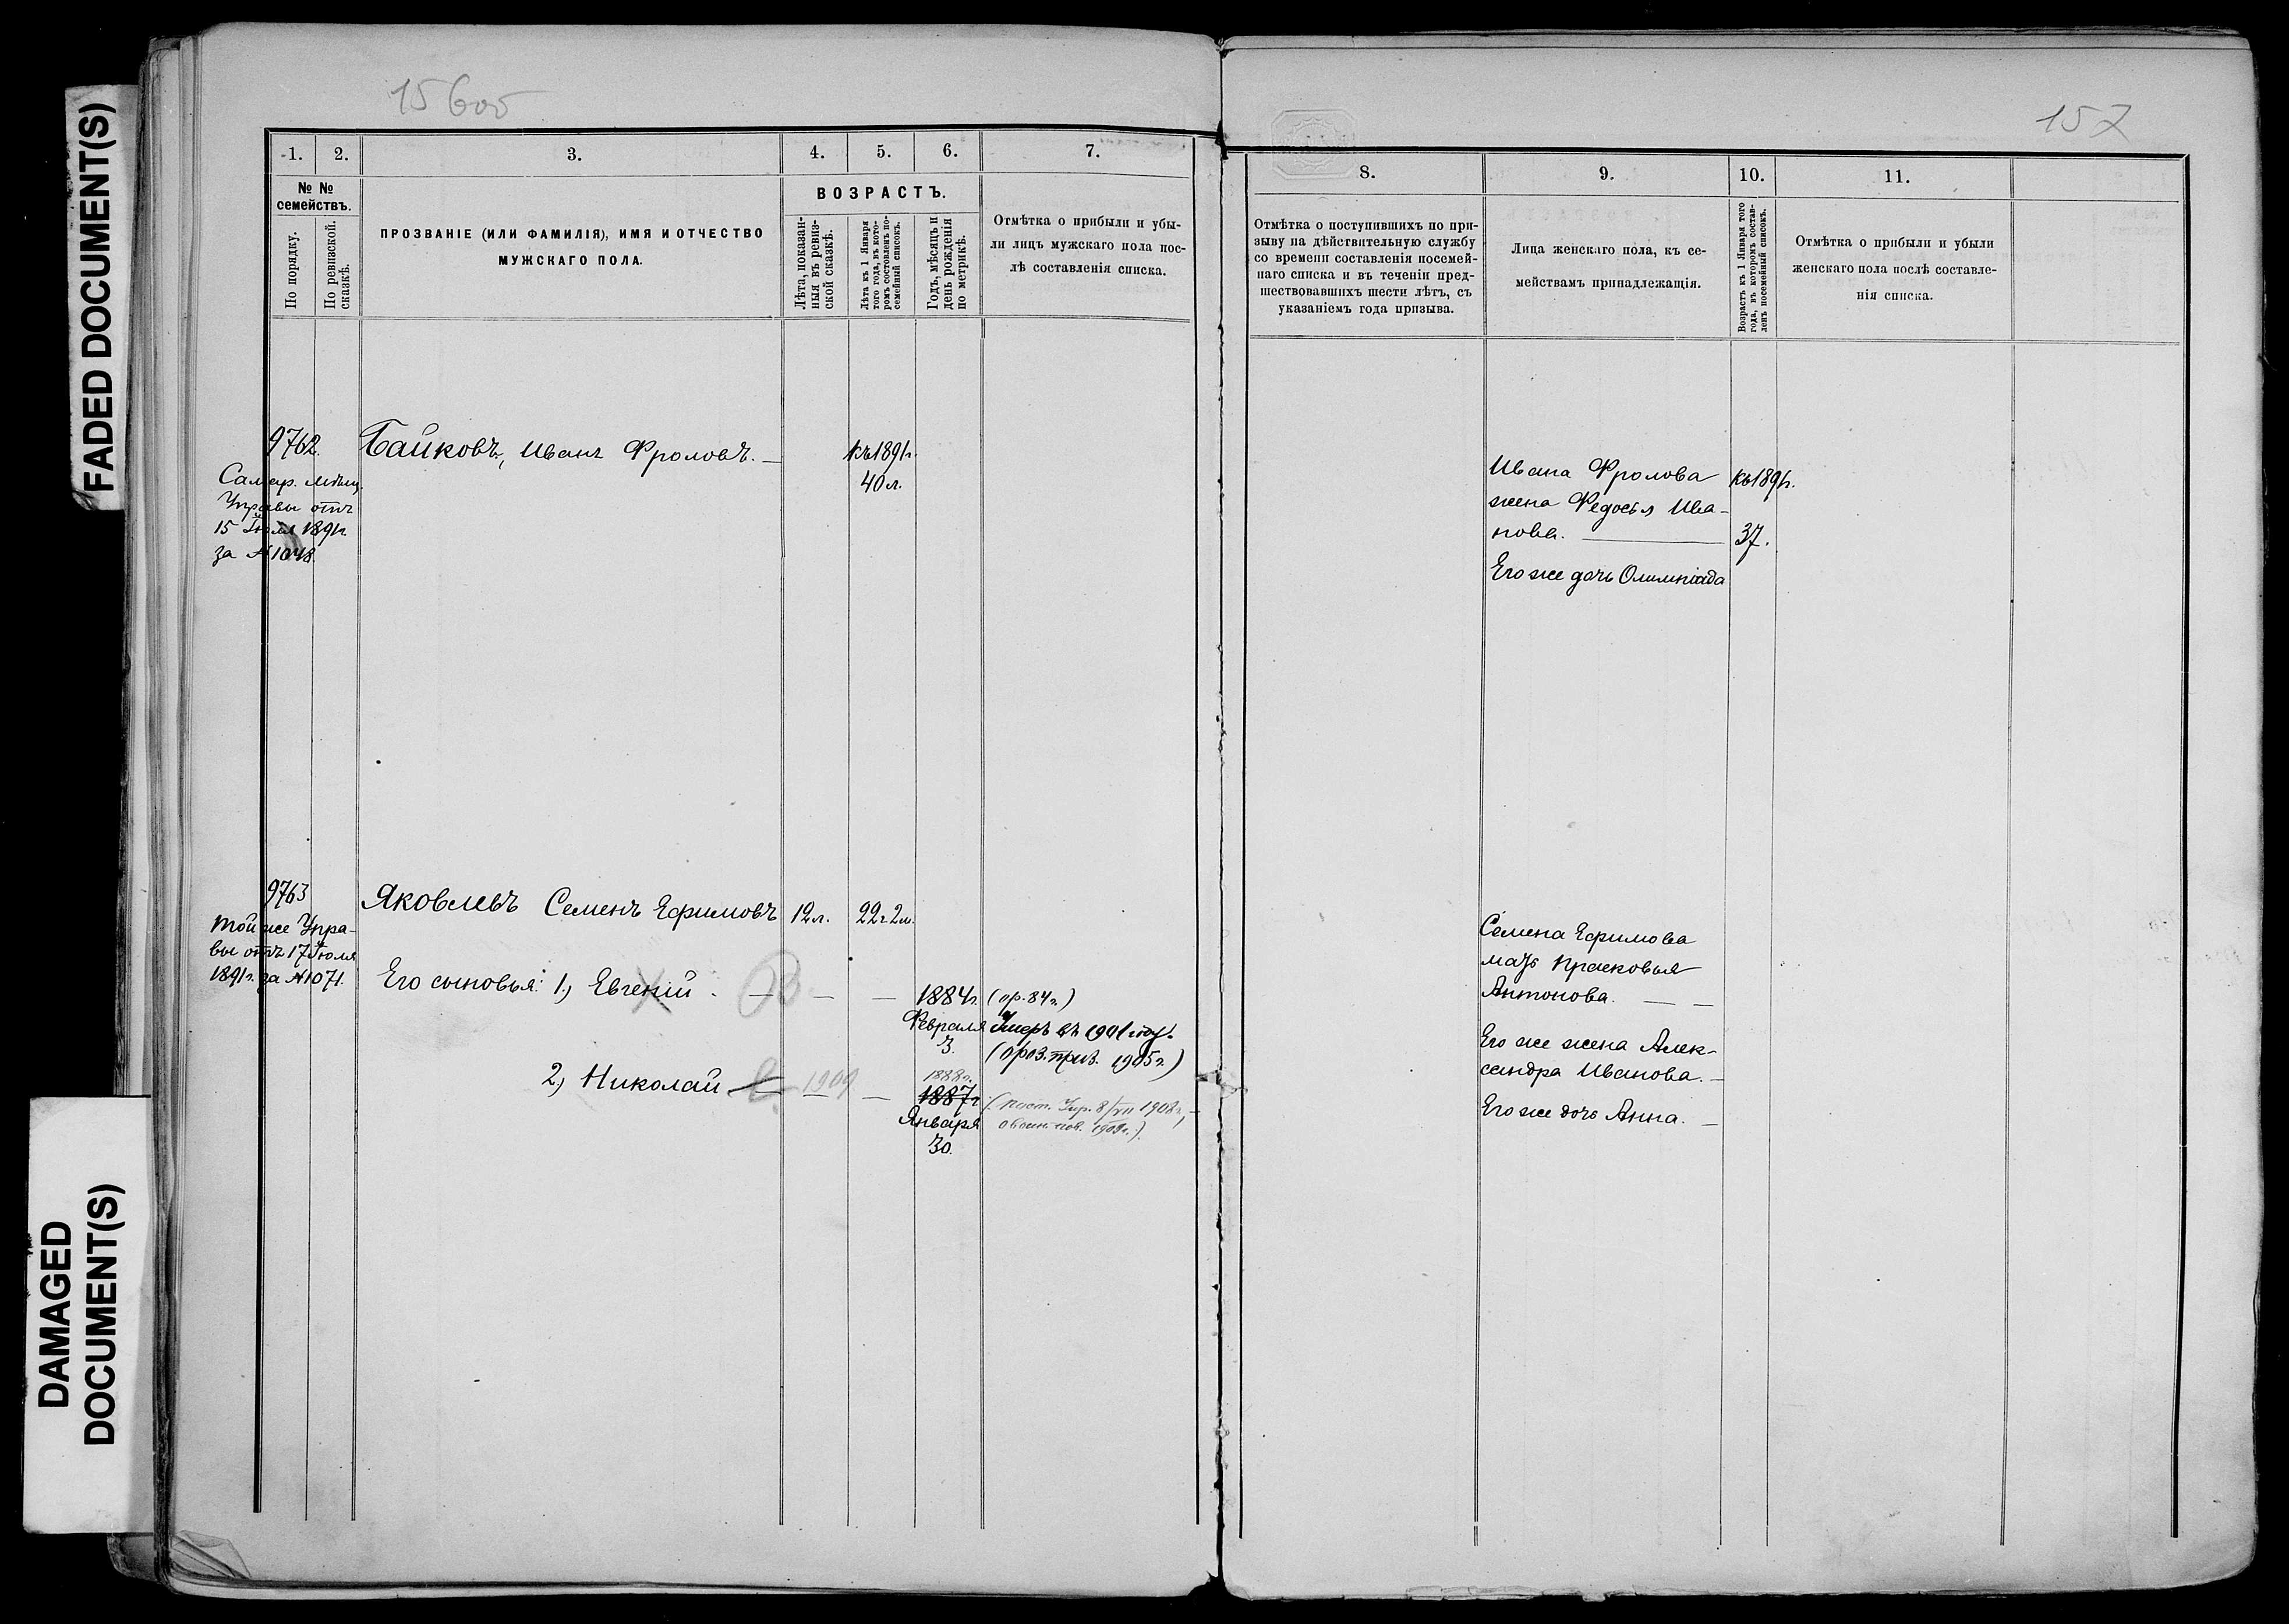 FADED DOCUMENT(S)
DAMAGED
DOCUMENT(S)
15 600
1.
2.
3.
4.
5.
6.
7.
№ №
семействъ.
По порядку.
По ревизской.
сказкѣ.
ПРОЗВАНІЕ (ИЛИ ФАМИЛІЯ), ИМЯ И ОТЧЕСТВО
МУЖСКАГО ПОЛА.
ВОЗРАСТЪ.
Лѣта, показан-
ныя въ ревиз-
ской сказкѣ.
Лѣта къ 1 Января
того года, въ кото-
ромъ составленъ по-
семейный списокъ.
Годъ, мѣсяцъ и
день рожденія
по метрикѣ.
Отмѣтка о прибыли и убы-
ли лицъ мужскаго пола пос-
лѣ составленія списка.
9762.
Самар. мѣщ.
Управы отъ
15 Іюля 1891г
за № 1048.
Байковъ, Иванъ Фроловъ. —
къ 1891г.
40 л.
9763
Той же Упра-
вы отъ 17 Іюля
1891г. за №1071.
Яковлевъ Семенъ Ефимовъ
12 л.
22 г. 2 м.
Его сыновья: 1.) Евгеній. — — —
1884г.
Февраля
3.
(ор. 84 г.)
Умеръ въ 1901 году.
1905 г.)
2.) Николай — 1909 —
1888г.
1887 г
Января
30.
(Пост. Упр. 8/VII 1908 г.,
1908г.)
157
8.
9.
10.
11.
Отмѣтка о поступившихъ по при-
зыву на дѣйствительную службу
со времени составленія посемей-
наго списка и въ теченіи пред-
шествовавшихъ шести лѣтъ, съ
указаніемъ года призыва.
Лица женскаго пола, къ се-
мействамъ принадлежащія.
Возрастъ къ 1 Января того
года, въ которомъ состав-
ленъ посемейный списокъ.
Отмѣтка о прибыли и убыли
женскаго пола послѣ составле-
нія списка.
Ивана Фролова
жена Федосья Ива-
нова. —
къ 1891г.
37.
Его же дочь Олимпіада
Семена Ефимова
мать Прасковья
Антонова. — —
Его же жена Алек-
сандра Иванова. —
Его же дочь Анна. —